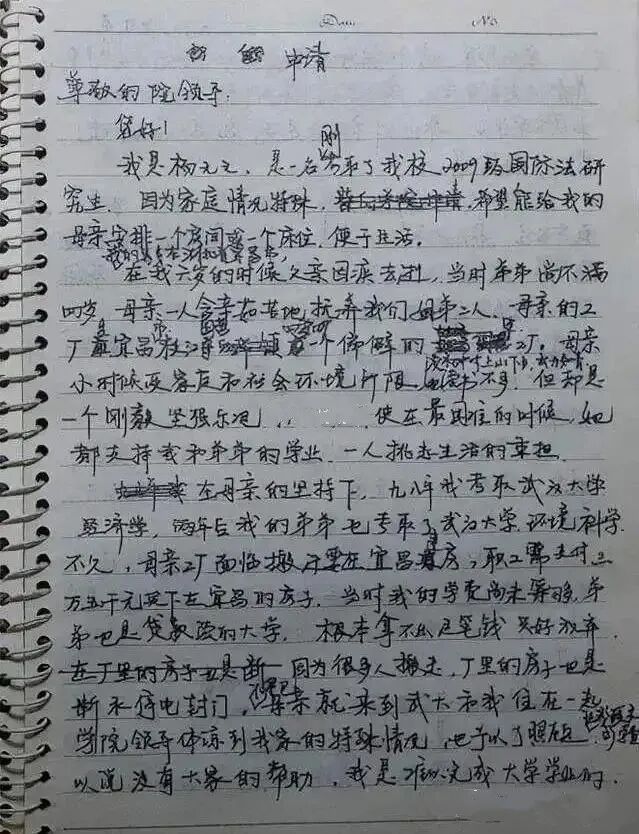 申请
尊敬的院领导:
您好!
我是杨元元,是一名刚考取了我校2009级国际法研
究生,因为家庭情况特殊,希望能给我的
母亲安排一个房间或一个床位,便于生活。
在我六岁的时候父亲因疾去逝,当时弟弟尚不满
四岁,母亲一人含辛如苦地抚养我们姐弟二人。母亲的工
厂是宜昌市枝江 一个偏僻的 工厂。母亲
小时候受家庭和社会环境所限 读书不多,但却是
一个刚毅坚强乐观 使在最困难的时候,她
都支持我和弟弟的学业,一人挑起生活的重担。
在母亲的坚持下,九八年我考取武汉大学
经济学,两年后我的弟弟也考取了武汉大学环境科学
不久,母亲工厂面临搬 要在宜昌 房,职工需支付三
万五千元买下在宜昌的房子。当时我的学费尚未筹够,弟
弟也是贷款读的大学。根本拿不出这笔钱只好放弃
因为很多人搬走,厂里的房子也是
断水停电封门。母亲就来到武大和我住在一起
学院领导体谅到我家的特殊情况,也予以了照顾。可
以说没有大家的帮助,我是难以完成大学学业的。